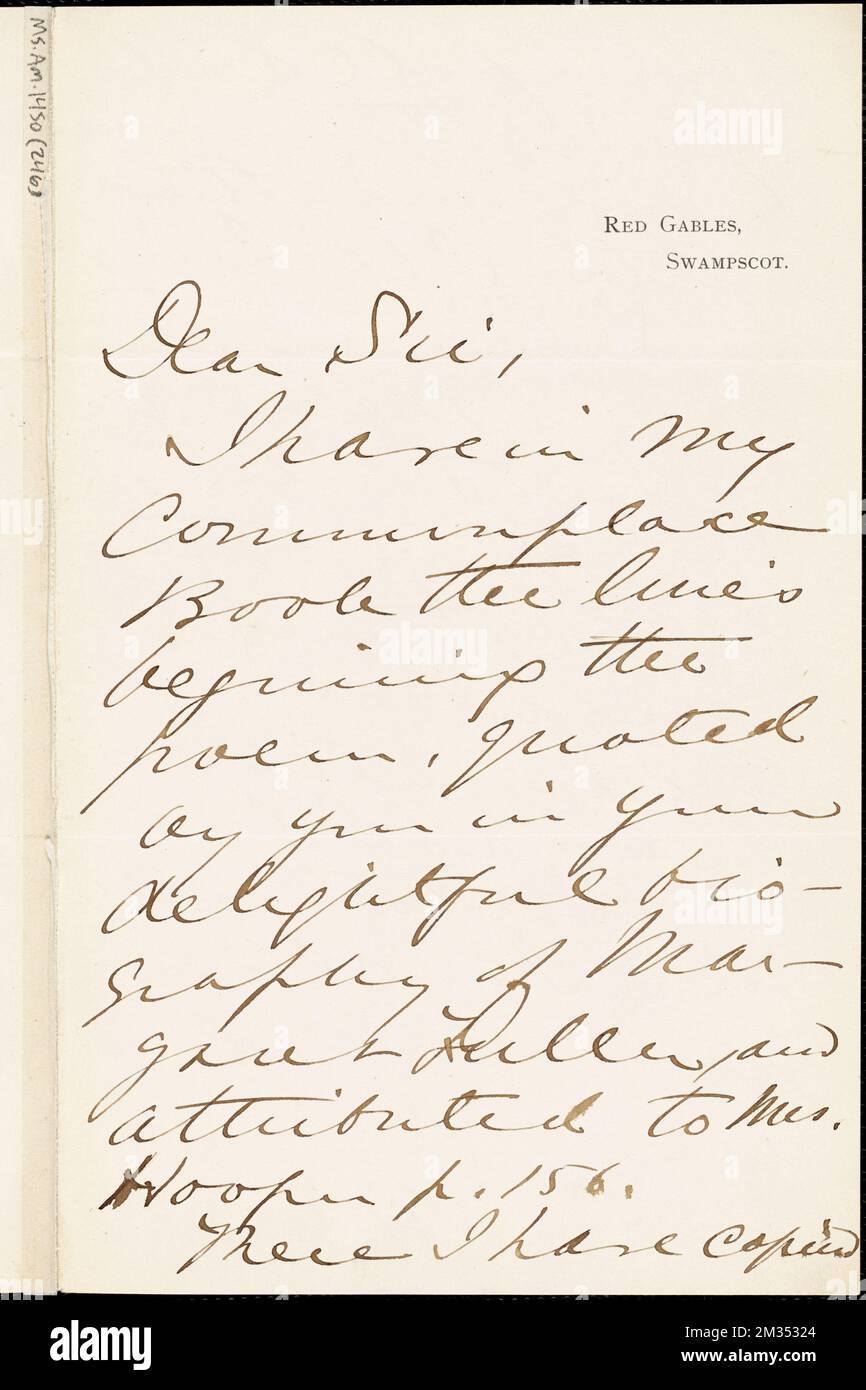 Ms. Am. 1450 (246)
RED GABLES,
SWAMPSCOT.
Dear Sir,
I have in my
Commonplace
Book the lines
beginning the
poem, quoted
by you in your
delightful bio-
graphy of Mar-
garet Fuller, and
attributed to Mrs.
Hooper p. 156.
These I have copied
alamy
2M35324
www.alamy.com